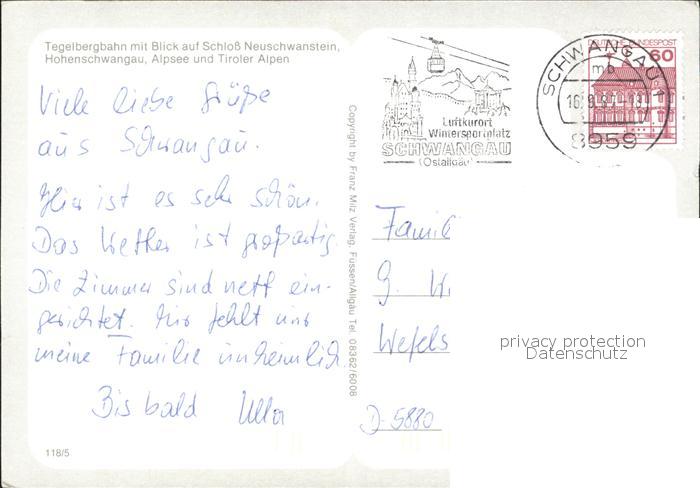 Tegelbergbahn mit Blick auf Schloß Neuschwanstein,
Hohenschwangau, Alpsee und Tiroler Alpen
Viele liebe Grüße
aus Schwangau.
Hier ist es sehr schön.
Das Wetter ist großartig.
Die Zimmer sind nett ein-
gerichtet. Mir fehlt nur
meine Familie unheimlich.
Bis bald Ulla
118/5
Copyright by Franz Milz Verlag, Füssen/Allgäu Tel. 08362/6008
Luftkurort
Wintersportplatz
SCHWANGAU
(Ostallgäu)
SCHWANGAU 1
mb
8959
DEUTSCHE BUNDESPOST
60
Famili
G.
D-5880
privacy protection
Datenschutz